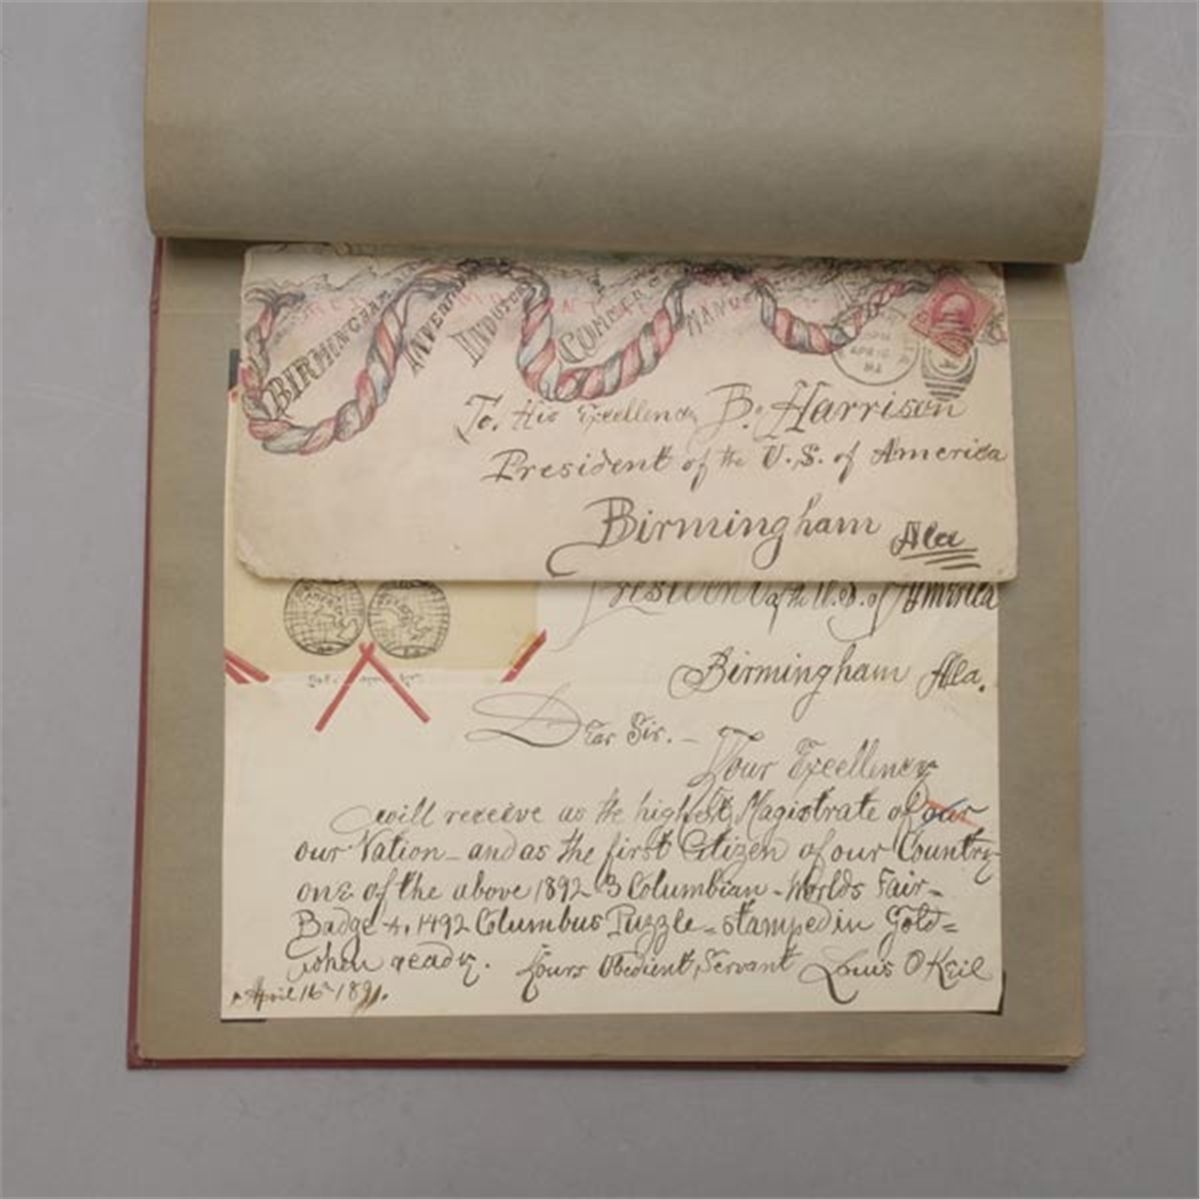 BIRMINGHAM
INVENT
INDUST
COMMERC
MANU
APR 16
To, His Excellency B. Harrison
President of the U.S. of America
Birmingham Ala
President of the U.S. of America
Birmingham Ala.
Dear Sir. –
Your Excellency
will receive as the highest Magistrate of our
our Nation – and as the first Citizen of our Country
one of the above 1892-3 Columbian - Worlds Fair -
Badge & 1492 Columbus Puzzle = stamped in Gold =
when ready. Yours Obedient, Servant Louis O Keil
April 16th 1891.